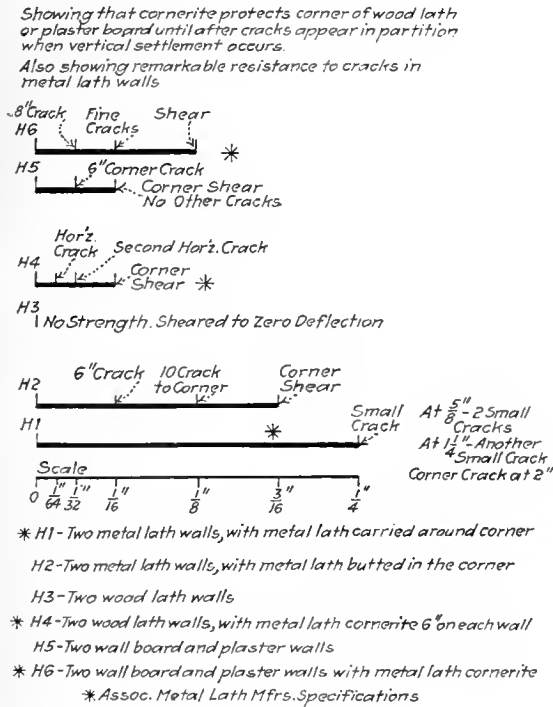 Showing that cornerite protects corner of wood lath
or plaster board until after cracks appear in partition
when vertical settlement occurs.
Also showing remarkable resistance to cracks in
metal lath walls
.8"Crack Fine Cracks Shear
H6
*
H5
6"Corner Crack
Corner Shear
No Other Cracks
Hor'z. Crack
Second Hor'z. Crack
H4
Corner Shear *
H3
No Strength. Sheared to Zero Deflection
6"Crack 10 Crack to Corner Corner Shear
H2
H1
*
Small Crack
At 5/8"-2 Small Cracks
At 1 1/4"-Another Small Crack
Corner Crack at 2"
Scale
0 1/64" 1/32" 1/16" 1/8" 3/16" 1/4"
* H1-Two metal lath walls, with metal lath carried around corner
H2-Two metal lath walls, with metal lath butted in the corner
H3-Two wood lath walls
* H4-Two wood lath walls, with metal lath cornerite 6"on each wall
H5-Two wall board and plaster walls
* H6-Two wall board and plaster walls with metal lath cornerite
* Assoc. Metal Lath Mfrs. Specifications